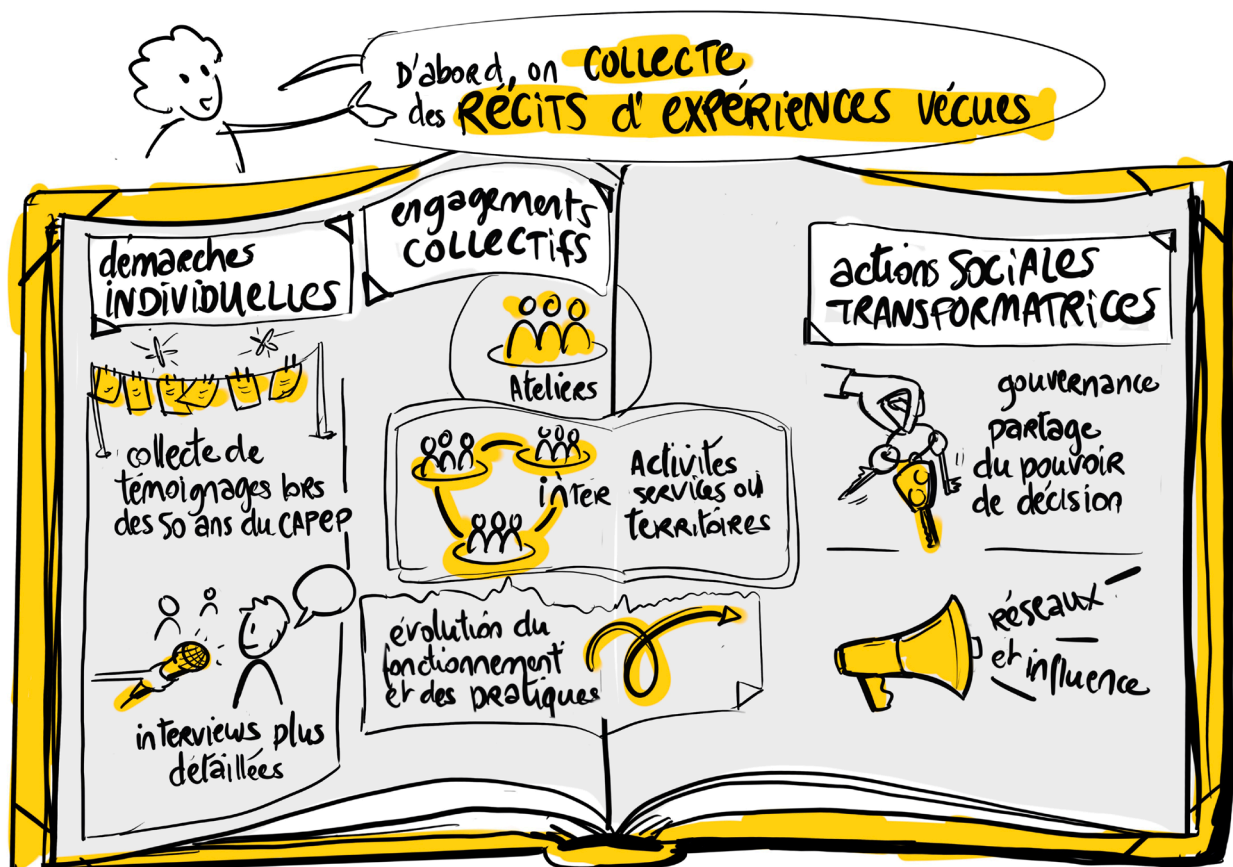 D'abord, on COLLECTE
des RÉCITS d'EXPÉRIENCES VÉCUES
démarches
INDIVIDUELLES
collecte de
témoignages lors
des 50 ans du CAPEP
interviews plus
détaillées
engagements
COLLECTIFS
Ateliers
inter
Activités
services ou
territoires
évolution du
fonctionnement
et des pratiques
actions SOCIALES
TRANSFORMATRICES
gouvernance
partage
du pouvoir
de décision
réseaux
et influence